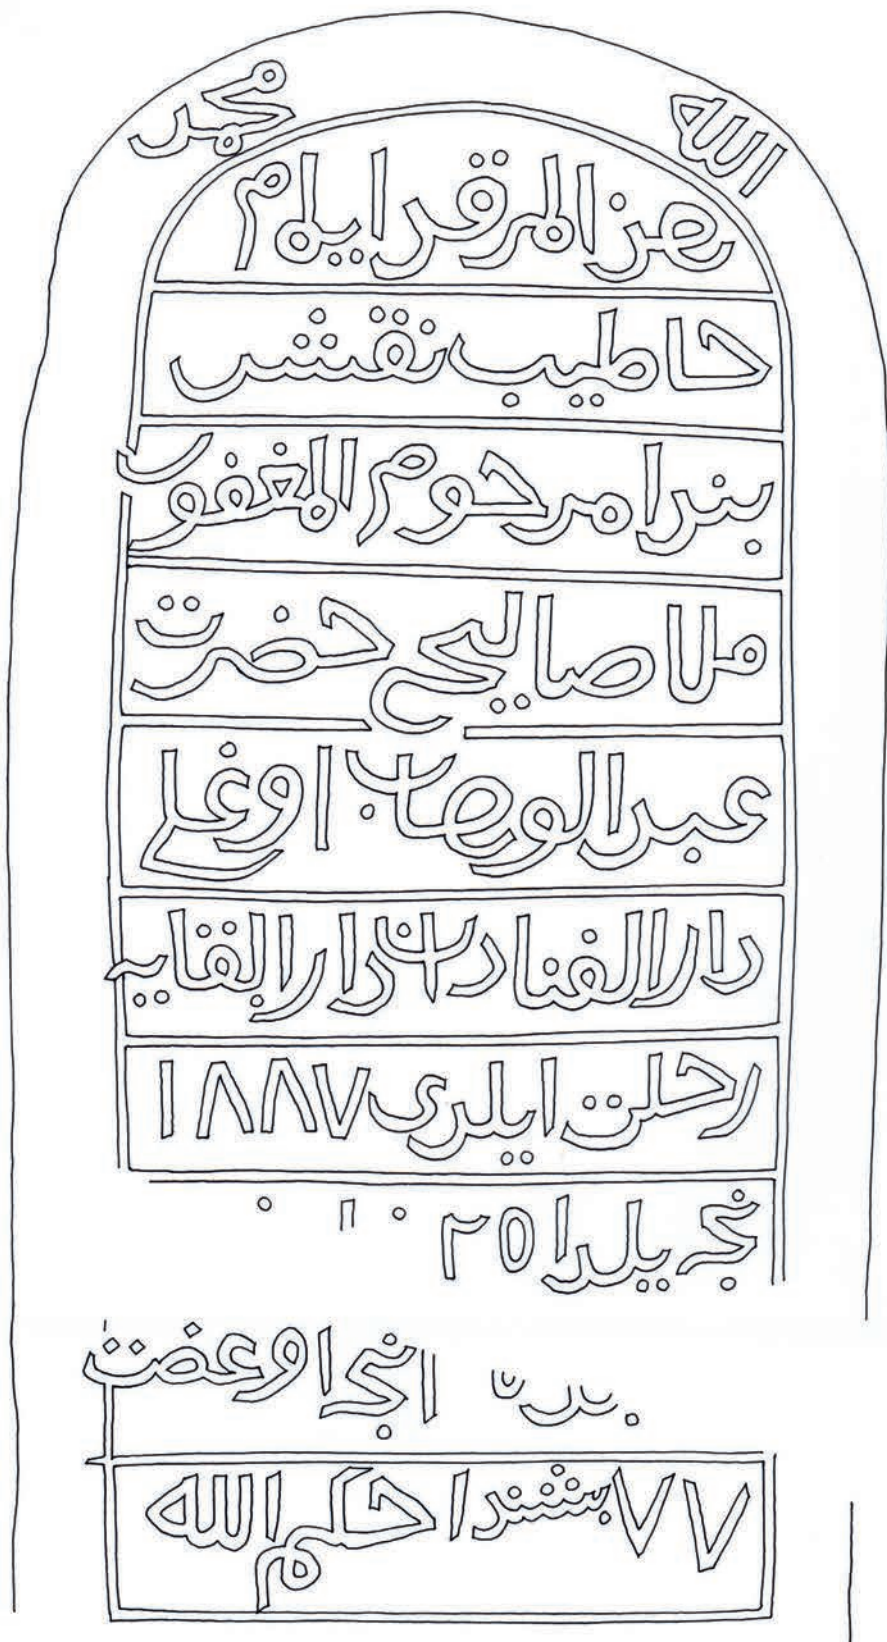 الله محمد
هذا المرقد ايمام
حاطيب نقش
بندا مرحوم المغفور
ملا صاليح حضرت
عبد الوهاب اوغلى
دار الفنادان دار البقايه
رحلت ايلدى ١٨٨٧
نجى يلدا ٢٥
انجى اوغضت
٧٧ يشندا حكم الله